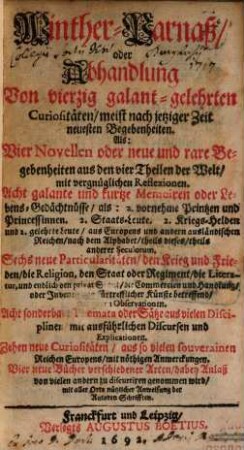 Winther-Parnaß/
oder
Abhandlung
Von vierzig galant-gelehrten
Curiositäten/ meist nach jetziger Zeit
neuesten Begebenheiten.
Als:
Vier Novellen oder neue und rare Be-
gebenheiten aus den vier Theilen der Welt/
mit vergnüglichen Reflexionen.
Acht galante und kurtze Memoiren oder Le-
bens-Gedächtnüsse/ als: 2. vornehme Printzen und
Princessinnen. 2. Staats-Leute. 2. Kriegs-Helden
und 2. gelehrte Leute/ aus Europens und andern ausländischen
Reichen/ nach dem Alphabet/ theils dieses/ theils
anderer Seculorum.
Sechs neue Particularitäten/ den Krieg und Frie-
den/ die Religion, den Staat oder Regiment/ die Litera-
tur, und endlich den privat Commercien und Handlung/
oder Künste betreffend/
Observationen.
Acht sonderbare Themata oder Sätze aus vielen Disci-
plinen mit ausführlichen Discursen und
Explicationen.
Zehen neue Curiositäten/ aus so vielen souverainen
Reichen Europens/ mit nöthigen Anmerckungen.
Vier neue Bücher verschiedener Arten/ dabey Anlaß
von vielen andern zu discuriren genommen wird/
mit aller Orts nützlicher Anweisung der
Autoren Schrifften.
Franckfurt und Leipzig/
Verlegts AUGUSTUS BOETIUS.
1692.